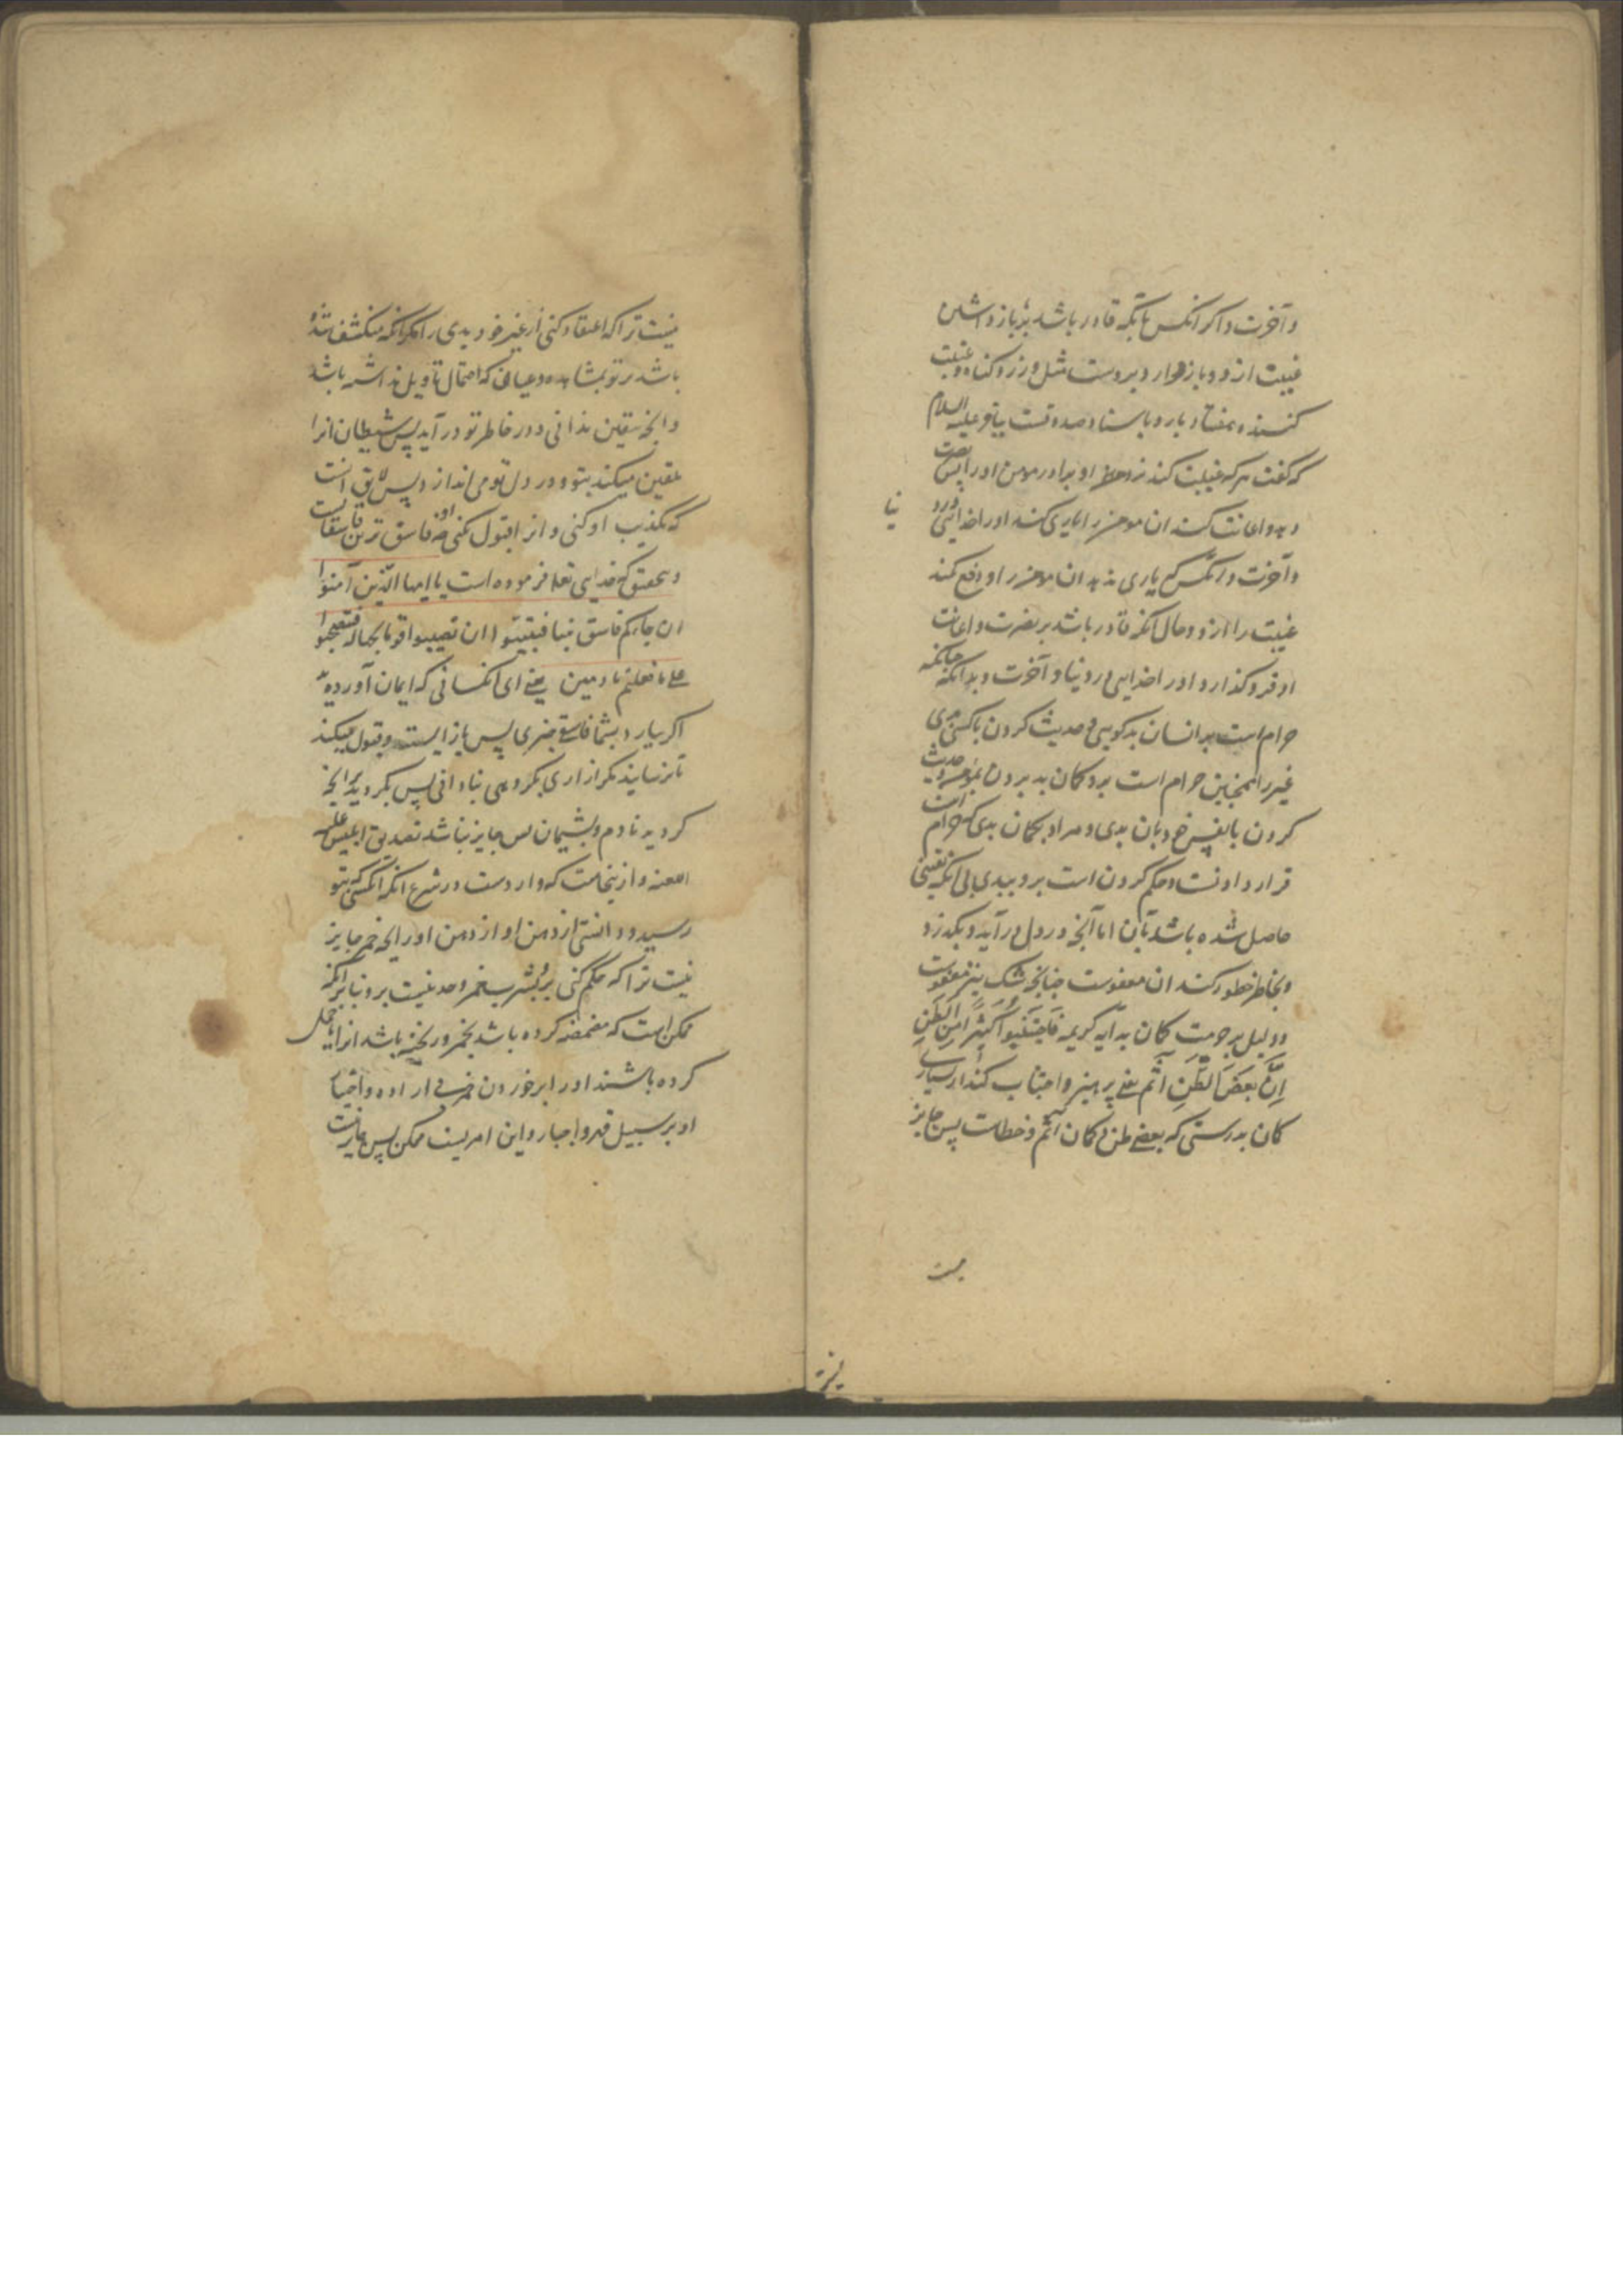 و آخرت و اگر انکس با آنکه قادر باشد بر باز داشتن
غیبت ازو و باز ندارد بروست مثل وزر و کناه غیبت
کننده هفتاد بار و باسناد صدوقست بباقر علیه السلام
که گفت هر که غیبت کنند نزد او برادر مومن او را پس نصرت
دهد و اعانت کند ان مومن را یاری کند او را خدایتعالی در دنیا
و آخرت و انکس که یاری ندهد ان مومن را و دفع نکند
غیبت را ازو و حال آنکه قادر باشد بر نصرت و اعانت
او فرو کذارد او را خدایی در دنیا و آخرت و بدانکه چنانکه
حرام است بر انسان بدکویی و حدیث کردن با کسی بدی
غیر را همچنین حرام است برو کمان بد بردن بمومن و حدیث
کردن با نفس خود بان بدی و مراد بکمان بدی که حرام است
قرار دادنست و حکم کردن است برو ببدی بی آنکه یقینی
حاصل شده باشد بآن اما آنچه در دل در آید و بکذرد
و بخاطر خطور کند ان معفوست چنانچه شک نیز معفوست
و دلیل بر حرمت کمان بد آیه کریمه فَاجْتَنِبُوا كَثِيرًا مِنَ الظَّنِّ
اِنَّ بَعْضَ الظَّنِّ اثم یعنی پرهیز و اجتناب کنید از بسیاری
کمان بدرستی که بعضی ظن و کمان اثم و خطاست پس جایز
نیست
نیست ترا که اعتقاد کنی از غیر خود بدی را مکر انکه منکشف شده
باشد بر تو بمشاهده و عیانی که احتمال تاویل نداشته باشد
و انچه یقین ندانی و در خاطر تو در آید پس شیطان انرا
تلقین میکند بتو و در دل تو می اندازد پس لایق انست
که تکذیب او کنی و انرا قبول نکنی چه او فاسق ترین فاسقانست
و بتحقیق که خدایی تعالی فرموده است یا ایها الذین آمنوا
ان جاءکم فاسق بنبا فتبینوا ان تصیبوا قوما بجهالة فتصبحوا
علی ما فعلتم نادمین یعنی ای انکسانی که ایمان آورده اید
اکر بیارد بشما فاسقی خبری پس باز ایستید و قبول میکنید
تا نرسانید مکر ازاری بکروهی بنادانی پس بکردید بر انچه
کردید نادم و پشیمان پس جایز نباشد تصدیق ابلیس علیه
اللعنه و ازینجاست که واردست در شرع انکه انکسی که بتو
رسید و دانستی از دهن او از دهن او رایحه خمر جایز
نیست ترا که حکم کنی بر شرب خمر و حد نیست برو بنا بر انکه
ممکن است که مضمضه کرده باشد بخمر و ریخته باشد انرا یا حمل
کرده باشند او را بر خوردن خمر بی اراده و اختیار
او بر سبیل قهر و اجبار و این امریست ممکن پس جایز نیست